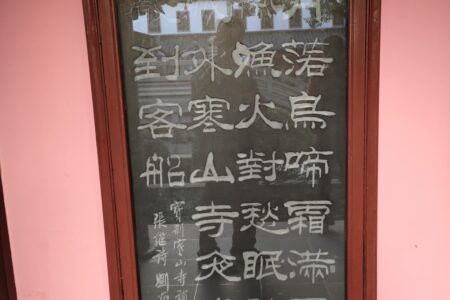 落烏啼霜滿
漁火對愁眠
外寒山寺夜
到客船
寒山寺
張繼詩劉